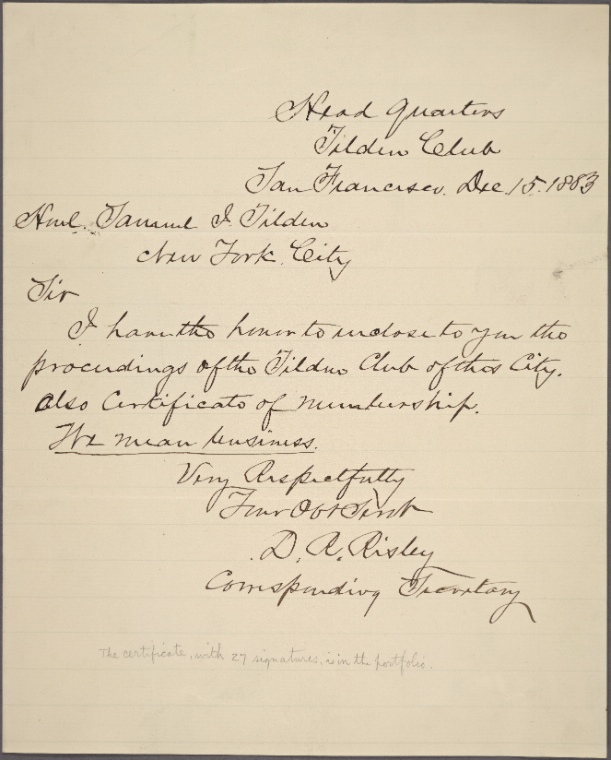 Head Quarters
Tilden Club
San Francisco. Dec. 15. 1883
Honl. Samuel J. Tilden
New York City
Sir
I have the honor to inclose to you the
proceedings of the Tilden Club of this City.
also Certificate of Membership.
We mean business.
Very Respectfully
Your Obt Servt
D. R. Risley
Corresponding Secretary
The certificate, with 27 signatures, is in the portfolio.